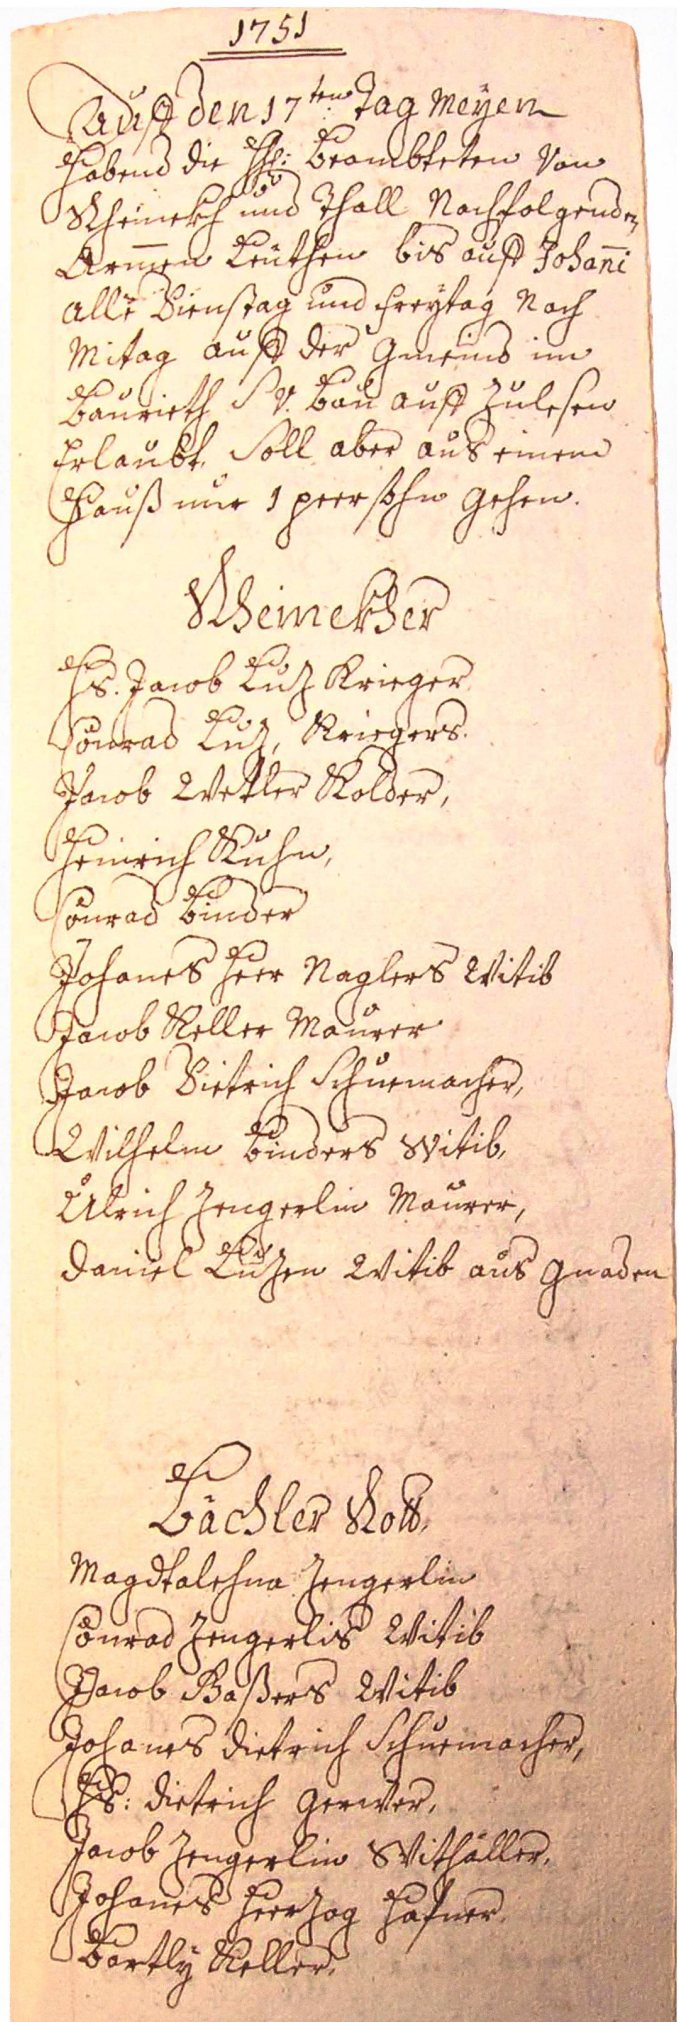 1751
Auff den 17ten tag Meÿen
Habend die HH: Beambteten Von
Rheinekh und Thall Nachfolgenden
Armen Leuthen bis auff Johani
alle Dienstag und freÿtag Nach
Mitag auff der Gmeind im
Baurieth S.V. Bau auff Zulesen
Erlaubt. Soll aber aus einem
Hauß nur 1 peersohn gehen.
Rheinekher
Hs. Jacob Luz Krieger
Conrad Luz, Kriegers.
Jacob Wetler Kolder,
Heinrich Kuhn,
Conrad Binder
Johanes Heer Naglers Witib
Jacob Keller Maurer
Jacob Dietrich Schuemacher,
Wilhelm Binders Witib,
Ulrich Zengerlin Maurer,
Daniel Luzen Witib aus Gnaden
Bächler Rott,
Magdtalehna Zengerlin
Conrad Zengerlis Witib
Jacob Baßers Witib
Johanes dietrich Schuemacher,
Hs: dietrich Gerwer,
Jacob Zengerlin
Johanes Heerzog Hafner.
Bartlÿ Keller,